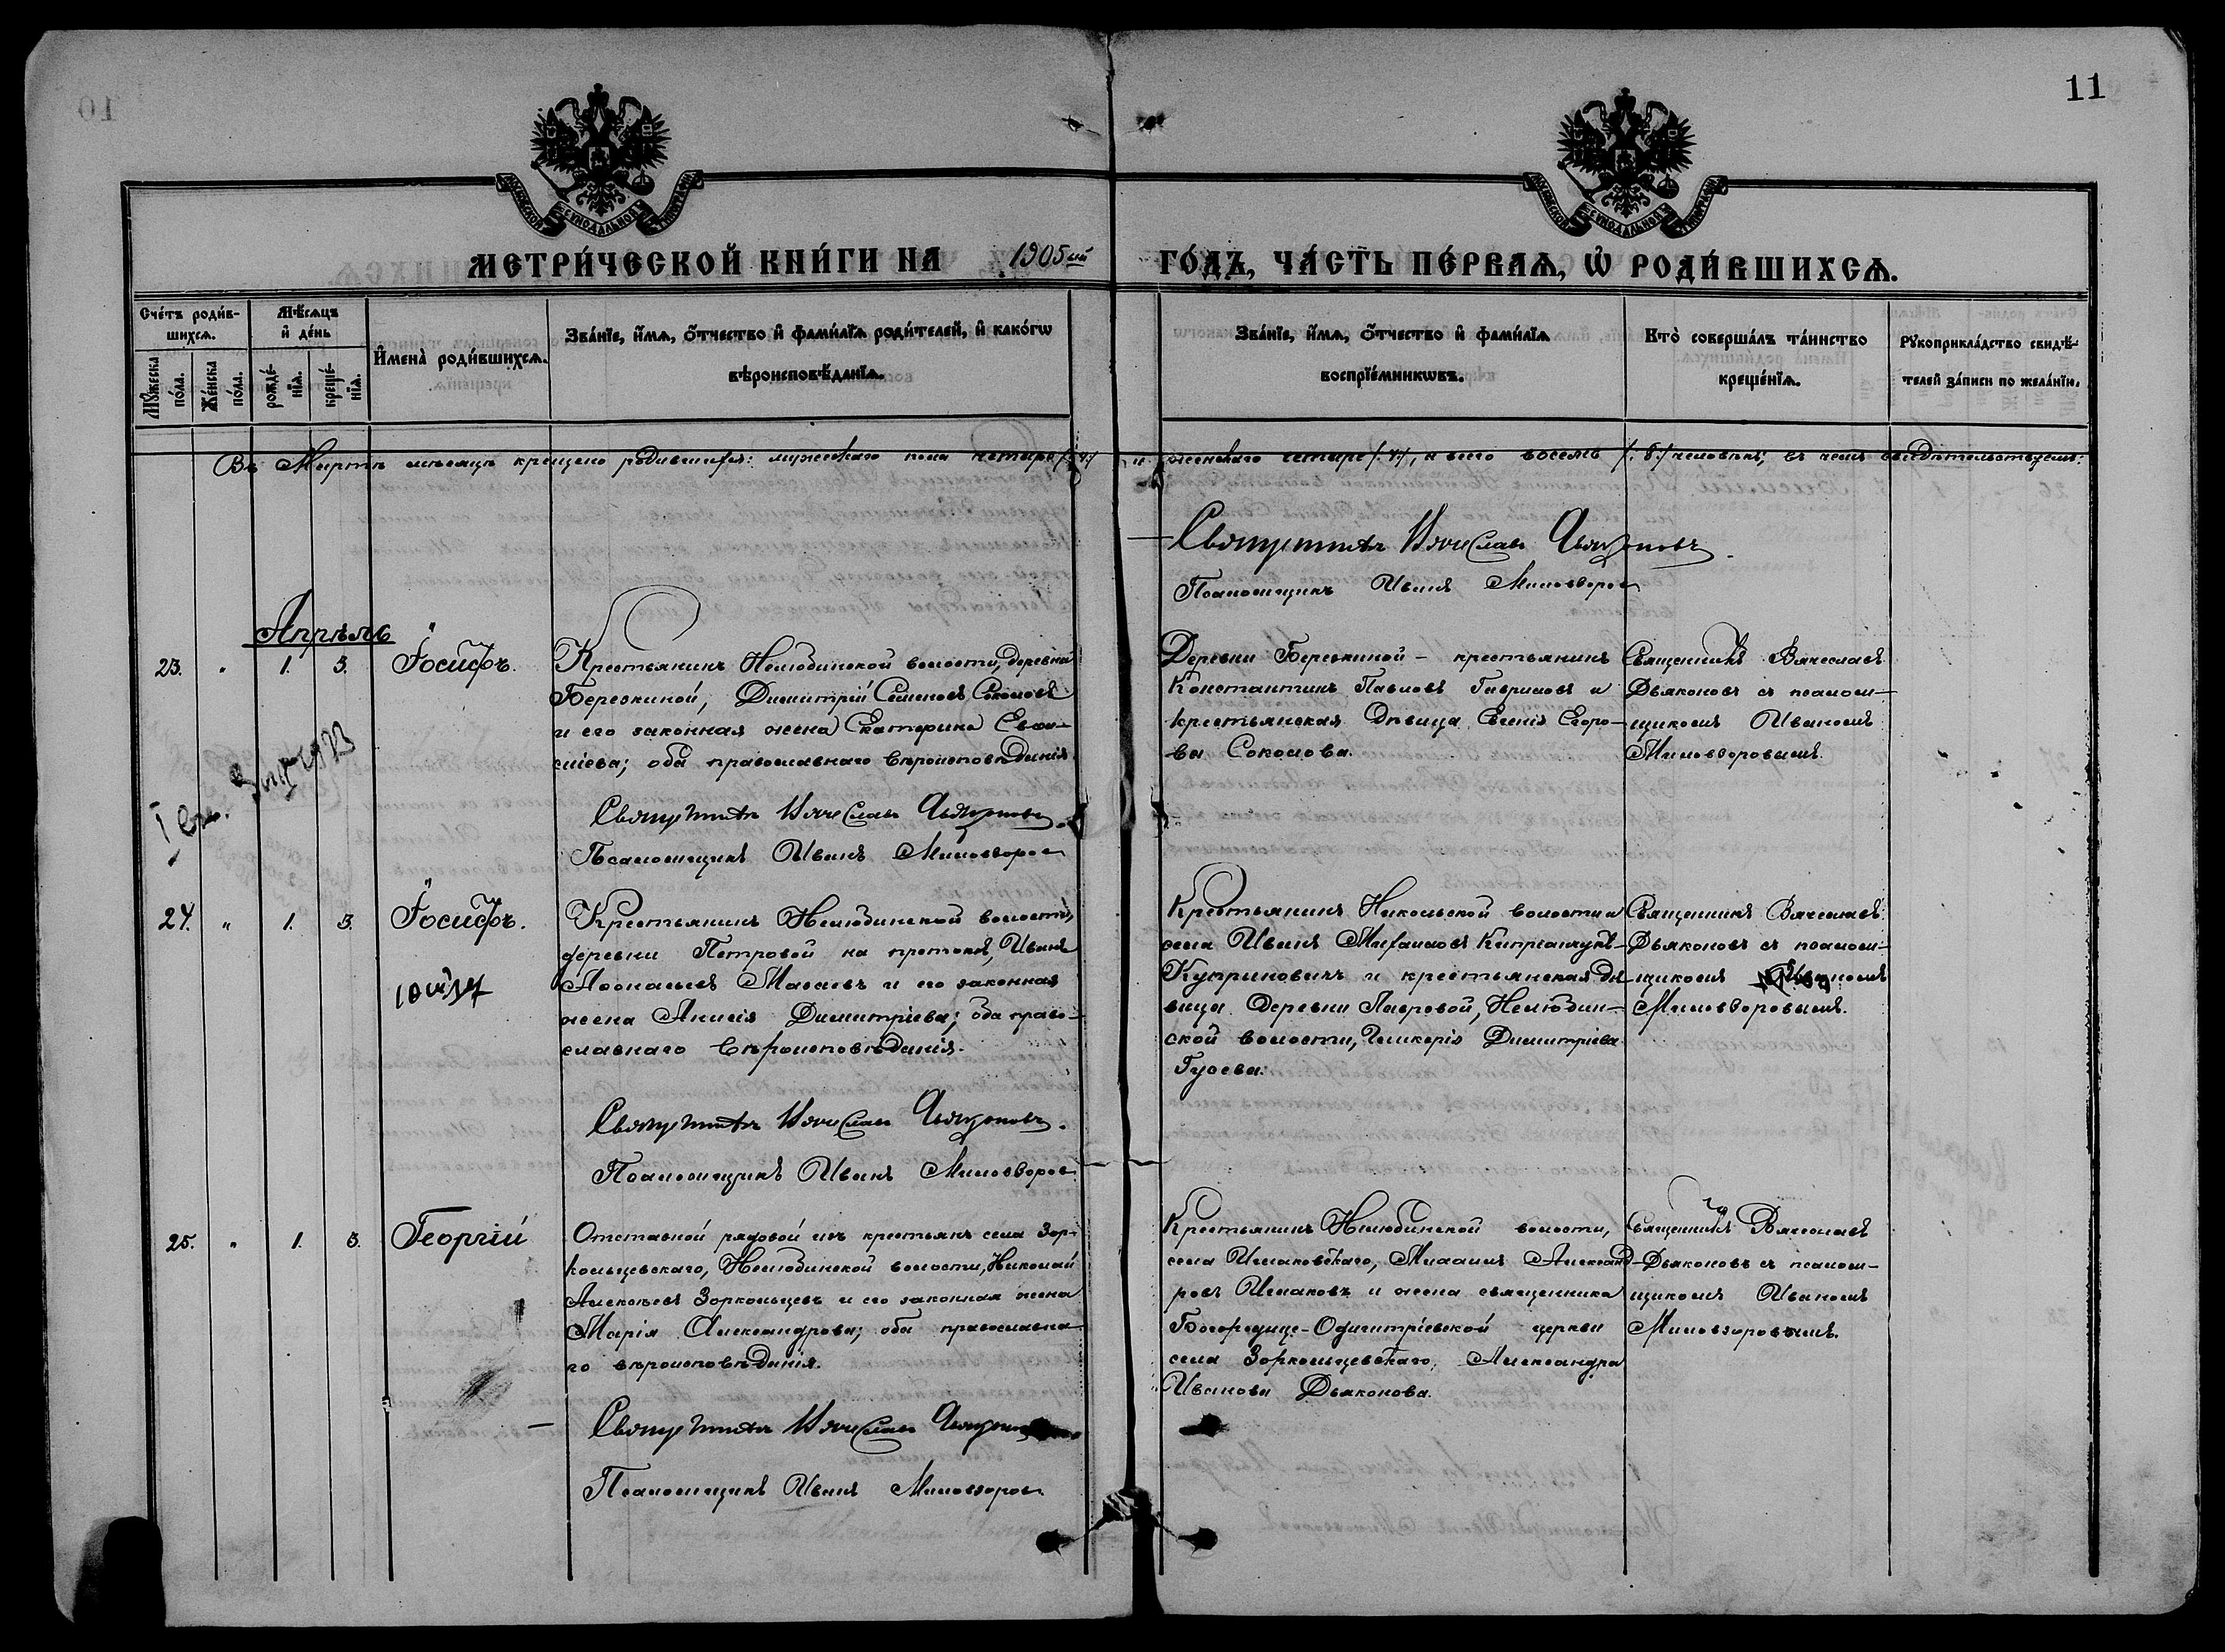 11
МЕТРИ́ЧЕСКОЙ КНИ́ГИ НА 1905ый ГО́ДЪ, ЧА́СТЬ ПЕ́РВАѦ, Ѡ҆ РОДИ́ВШИХСѦ.
Сче́тъ роди́в-
шихсѧ.
Мꙋ́жеска по́ла.
Же́нска по́ла.
Мѣ́сѧцъ
и҆ де́нь
рожде́-
нїѧ.
креще́-
нїѧ.
И҆мена̀ роди́вшихсѧ.
Зва́нїе, и҆́мѧ, ѻ҆́тчество и҆ фами́лїѧ роди́телей, и҆ како́гѡ
вѣроисповѣ́данїѧ.
Зва́нїе, и҆́мѧ, ѻ҆́тчество и҆ фами́лїѧ
воспрїе́мникѡвъ.
Кто̀ соверша́лъ та́инство
креще́нїѧ.
Рꙋкоприкла́дство свидѣ́-
телей за́писи по жела́нїю.
Въ Мартѣ мѣсяцѣ крещено родившихся: мужескаго пола четыре /:4:/ и женскаго четыре /:4:/, а всего восемь /:8:/ человѣкъ; въ чемъ свидѣтельствуемъ:
Священникъ Вячеславъ Дьяконовъ.
Псаломщикъ Иванъ Миловзоров
Апрѣль
23. " 1. 3. Іосифъ.
Крестьянинъ Нелюбинской волости, деревни
Березкиной, Димитрій Семеновъ Соколовъ
и его законная жена Екатерина Евѳи-
міева; оба православнаго вѣроисповѣданія
Деревни Березкиной - крестьянинъ
Константинъ Павловъ Гавриловъ и
крестьянская дѣвица Евгенія Егоро-
ва Соколова.
Священникъ Вячеславъ
Дьяконовъ съ псалом-
щикомъ Иваномъ
Миловзоровымъ.
Священникъ Вячеславъ Дьяконовъ.
Псаломщикъ Иванъ Миловзоров
24. " 1. 3. Іосифъ.
Крестьянинъ Нелюбинской волости,
деревни Петровой на протокѣ, Иванъ
Аѳонасьевъ Масаевъ и его законная
жена Анисія Димитріева; оба право-
славнаго вѣроисповѣданія.
Крестьянинъ Никольской волости и
села Иванъ Михаиловъ
Куприновичъ и крестьянская дѣ-
вица деревни Лавровой, Нелюбин-
ской волости, Гликерія Димитріева
Гусева.
Священникъ Вячеславъ
Дьяконовъ съ псалом-
щикомъ Иваномъ
Миловзоровымъ.
Священникъ Вячеславъ Дьяконовъ.
Псаломщикъ Иванъ Миловзоров
25. " 1. 3. Георгій
Отставной рядовой изъ крестьянъ села Зор-
кольцевскаго, Нелюбинской волости, Николай
Алексѣевъ Зоркольцевъ и его законная жена
Марія Александрова; оба православна-
го вѣроисповѣданія.
Крестьянинъ Нелюбинской волости,
села Иглаковскаго, Михаилъ Александ-
ровъ Иглаковъ и жена священника
Богородице-Одигитріевской церкви
села Зоркольцевскаго, Александра
Иванова Дьяконова.
Священникъ Вячеславъ
Дьяконовъ съ псалом-
щикомъ Иваномъ
Миловзоровымъ.
Священникъ Вячеславъ
Псаломщикъ Иванъ Миловзоров